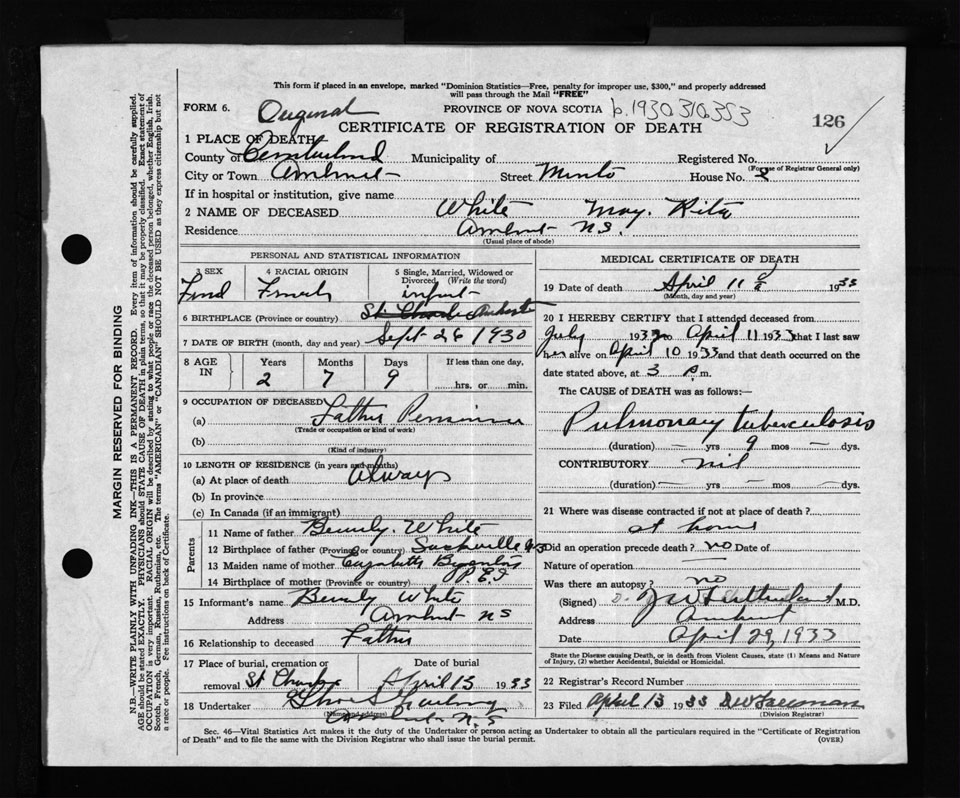 This form if placed in an envelope, marked "Dominion Statistics—Free, penalty for improper use, $300," and properly addressed
will pass through the Mail "FREE"
FORM 6. Original PROVINCE OF NOVA SCOTIA b.1930.310.353
CERTIFICATE OF REGISTRATION OF DEATH 126
1 PLACE OF DEATH
County of Cumberland Municipality of Registered No.
(For use of Registrar General only)
City or Town Amherst Street Minto House No. 8
If in hospital or institution, give name
2 NAME OF DECEASED White May. Rita
Residence Amherst N.S.
(Usual place of abode)
PERSONAL AND STATISTICAL INFORMATION
3 SEX 4 RACIAL ORIGIN 5 Single, Married, Widowed or
Divorced, (Write the word)
French infant
6 BIRTHPLACE (Province or country) St Charles Amherst
7 DATE OF BIRTH (month, day and year) Sept 26 1930
8 AGE IN Years Months Days If less than one day,
2 7 9 hrs. or min.
9 OCCUPATION OF DECEASED
(a) Father Pensioner
(Trade or occupation or kind of work)
(b)
(Kind of industry)
10 LENGTH OF RESIDENCE (in years and months)
(a) At place of death Always
(b) In province
(c) In Canada (if an immigrant)
Parents
11 Name of father Beverly White
12 Birthplace of father (Province or country) Sackville NB
13 Maiden name of mother Elizabeth
14 Birthplace of mother (Province or country) P.E.I
15 Informant's name Beverly White
Address Amherst NS
16 Relationship to deceased Father
17 Place of burial, cremation or removal St Charles Date of burial April 13 1933
18 Undertaker
(Name and address)
Amherst N.S
MEDICAL CERTIFICATE OF DEATH
19 Date of death April 11 1933
(Month, day and year)
20 I HEREBY CERTIFY that I attended deceased from
July 1932 to April 11 1933 that I last saw
her alive on April 10 1933 and that death occurred on the
date stated above, at 3 P.m.
The CAUSE OF DEATH was as follows:—
Pulmonary tuberculosis
(duration) — yrs 9 mos — dys.
CONTRIBUTORY nil
(duration) — yrs — mos — dys.
21 Where was disease contracted if not at place of death?
at home
Did an operation precede death? no Date of
Nature of operation —
Was there an autopsy? no
(Signed) Sutherland M.D.
Address Amherst
Date April 29, 1933
State the Disease causing Death, or in death from Violent Causes, state (1) Means and Nature
of Injury, (2) whether Accidental, Suicidal or Homicidal.
22 Registrar's Record Number
23 Filed April 13 1933
(Division Registrar)
Sec. 46—Vital Statistics Act makes it the duty of the Undertaker or person acting as Undertaker to obtain all the particulars required in the "Certificate of Registration
of Death" and to file the same with the Division Registrar who shall issue the burial permit. (OVER)
MARGIN RESERVED FOR BINDING
N.B.—WRITE PLAINLY WITH UNFADING INK—THIS IS A PERMANENT RECORD. Every item of information should be carefully supplied.
AGE should be stated EXACTLY. PHYSICIANS should STATE CAUSE OF DEATH in plain terms, so that it may be properly classified. Exact statement of
OCCUPATION is very important. RACIAL ORIGIN will be described by stating to what people or race the deceased person belonged, whether English, Irish,
Scotch, French, German, Russian, Ruthenian, etc. The terms "AMERICAN" or "CANADIAN" SHOULD NOT BE USED as they express citizenship but not
a race or people. See instructions on back of Certificate.